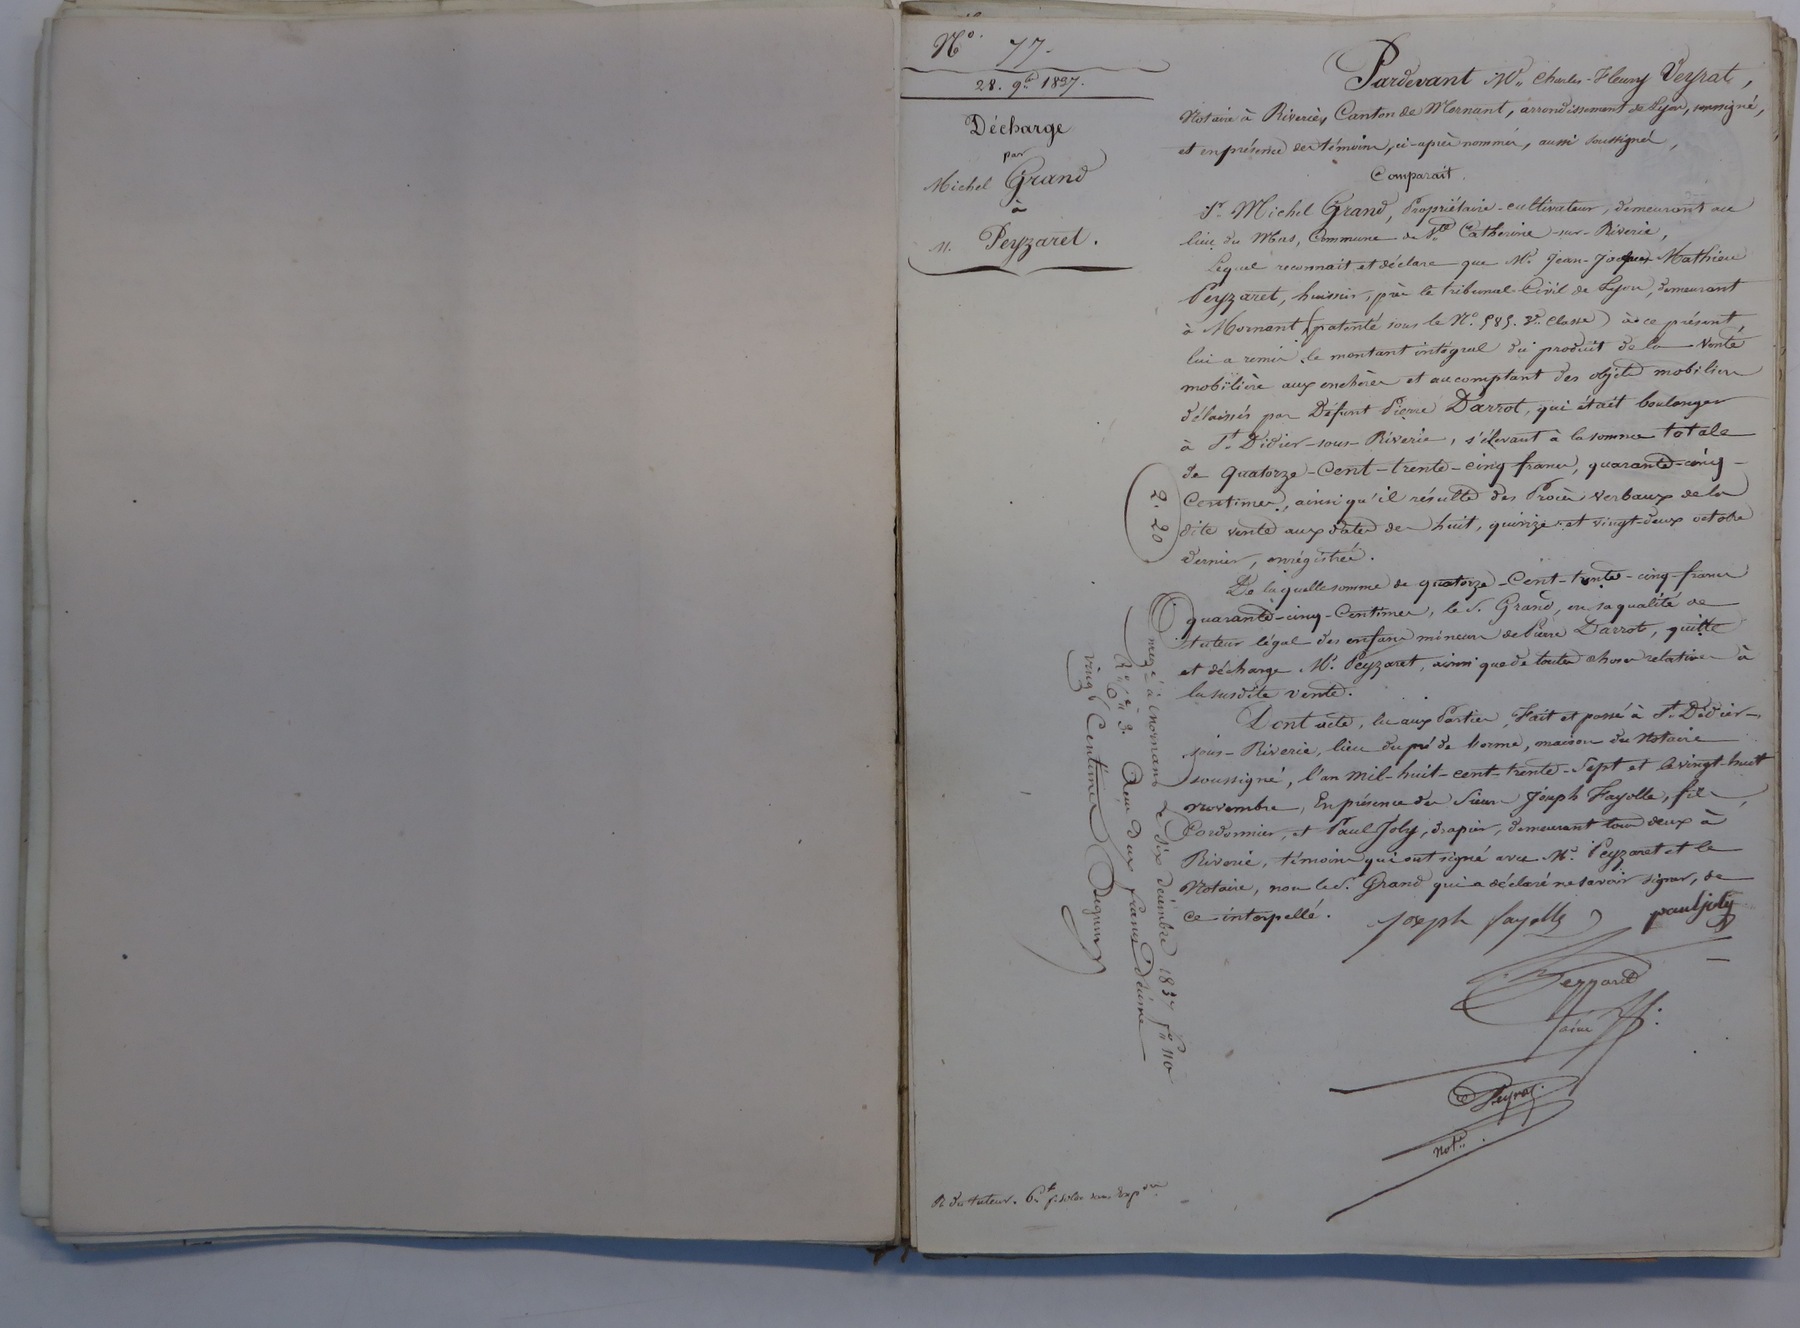 N.° 77.
28. 9.bre 1837.
Décharge
par
Michel Grand
à
M. Peyzaret.
Pardevant M.e Charles-Fleury Veyrat,
Notaire à Riverie, Canton de Mornant, arrondissement de Lyon, soussigné,
et en présence des témoins, ci-après nommés, aussi soussignés,
Comparait.
S.r Michel Grand, Propriétaire-cultivateur, demeurant au
lieu du Mas, Commune de S.te Catherine-sur-Riverie,
Lequel reconnait et déclare que M.r Jean-Jacques Mathieu
Peyzaret, huissier, près le tribunal Civil de Lyon, demeurant
à Mornant (patenté sous le N.° 585. 3.e Classe) à ce présent,
lui a remis le montant intégral du produit de la vente
mobilière aux enchères et au comptant des objets mobiliers
délaissés par Défunt Pierre Darrot, qui était boulanger
à S.t Didier-sous-Riverie, s'élevant à la somme totale
de quatorze-cent-trente-cinq francs, quarante-cinq-
Centimes, ainsi qu'il résulte des Procès verbaux de la
dite vente aux dates des huit, quinze et vingt-deux octobre
dernier, enregistrés.
De laquelle somme de quatorze-Cent-trente-cinq-francs
quarante-cinq-Centimes, le S. Grand, en sa qualité de
tuteur légal des enfans mineurs de Pierre Darrot, quitte
et décharge M.r Peyzaret, ainsi que de toutes choses relatives à
la susdite vente.
Dont acte, lu aux Parties, Fait et passé à S.t Didier-
sous-Riverie, lieu du pré de lorme, maison du Notaire
soussigné, l'an mil-huit-cent-trente-sept et le vingt-huit
novembre, En présence des Sieurs Joseph Fayolle, fils,
Cordonnier, et Paul Joly, drapier, demeurant tous deux à
Riverie, témoins qui ont signé avec M.r Peyzaret et le
Notaire, non le S. Grand qui a déclaré ne savoir signer, de
ce interpellé.
joseph fayolle
paul joly
Peyzaret
aîné
Veyrat
not.re
2. 20
Enreg.é à Mornant Le dix décembre 1837 f.° 110
R.° C.e 3. Reçu deux francs, décime
vingt Centimes